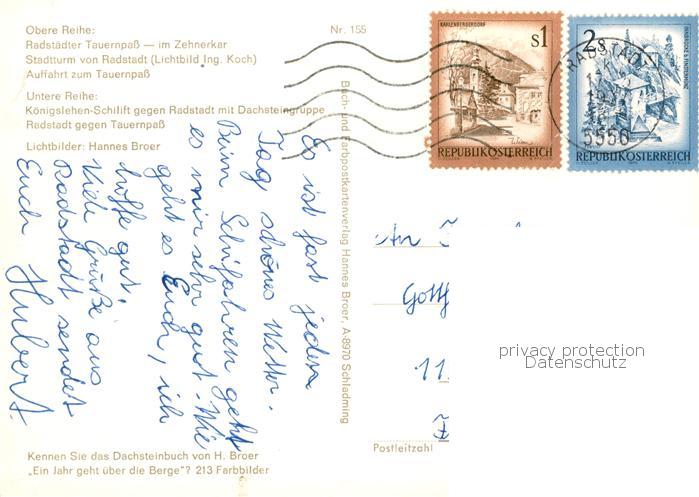 Obere Reihe:
Radstädter Tauernpaß — im Zehnerkar
Stadtturm von Radstadt (Lichtbild Ing. Koch)
Auffahrt zum Tauernpaß
Untere Reihe:
Königslehen-Schilift gegen Radstadt mit Dachsteingruppe
Radstadt gegen Tauernpaß
Lichtbilder: Hannes Broer
Nr. 155
KAHLENBERGERDORF
s1
Wien
REPUBLIK ÖSTERREICH
2s
REPUBLIK ÖSTERREICH
RADSTADT
5550
Es ist fast jeden
Tag schönes Wetter.
Beim Schifahren geht
es mir sehr gut. Wie
geht es Euch, ich
hoffe gut.
Viele Grüße aus
Radstadt sendet
Euch Hubert.
Buch- und Farbpostkartenverlag Hannes Broer, A-8970 Schladming
An
Gotth
11
privacy protection
Datenschutz
Postleitzahl
Kennen Sie das Dachsteinbuch von H. Broer
„Ein Jahr geht über die Berge"? 213 Farbbilder